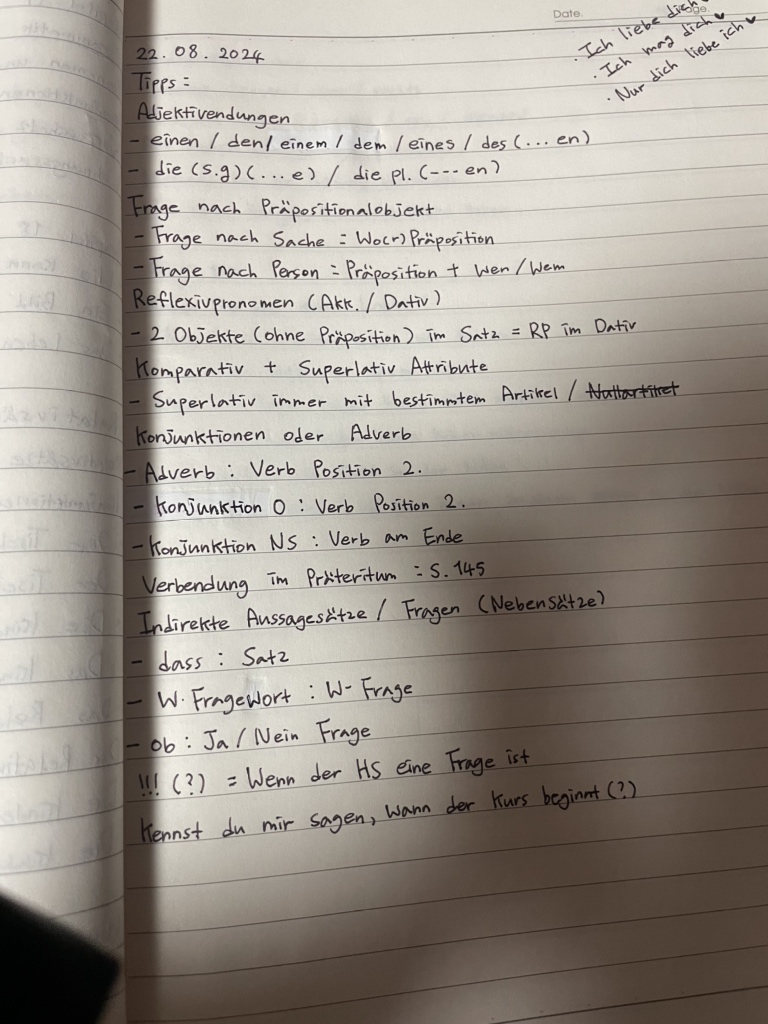 Date.
age.
· Ich liebe dich
· Ich mag dich ♥
· Nur dich liebe ich ♥
22.08.2024
Tipps =
Adjektivendungen
- einen / den / einem / dem / eines / des (... en)
- die (s.g) (... e) / die pl. (--- en)
Frage nach Präpositionalobjekt
- Frage nach Sache = Wo(r) Präposition
- Frage nach Person = Präposition + wen / wem
Reflexivpronomen (Akk. / Dativ)
- 2 Objekte (ohne Präposition) im Satz = RP im Dativ
Komparativ + Superlativ Attribute
- Superlativ immer mit bestimmtem Artikel / Nullartikel
Konjunktionen oder Adverb
- Adverb : Verb Position 2.
- Konjunktion 0 : Verb Position 2.
- Konjunktion NS : Verb am Ende
Verbendung im Präteritum = S. 145
Indirekte Aussagesätze / Fragen (Nebensätze)
- dass : Satz
- W. Fragewort : W- Frage
- ob : Ja / Nein Frage
!!! (?) = Wenn der HS eine Frage ist
Kennst du mir sagen, wann der Kurs beginnt (?)